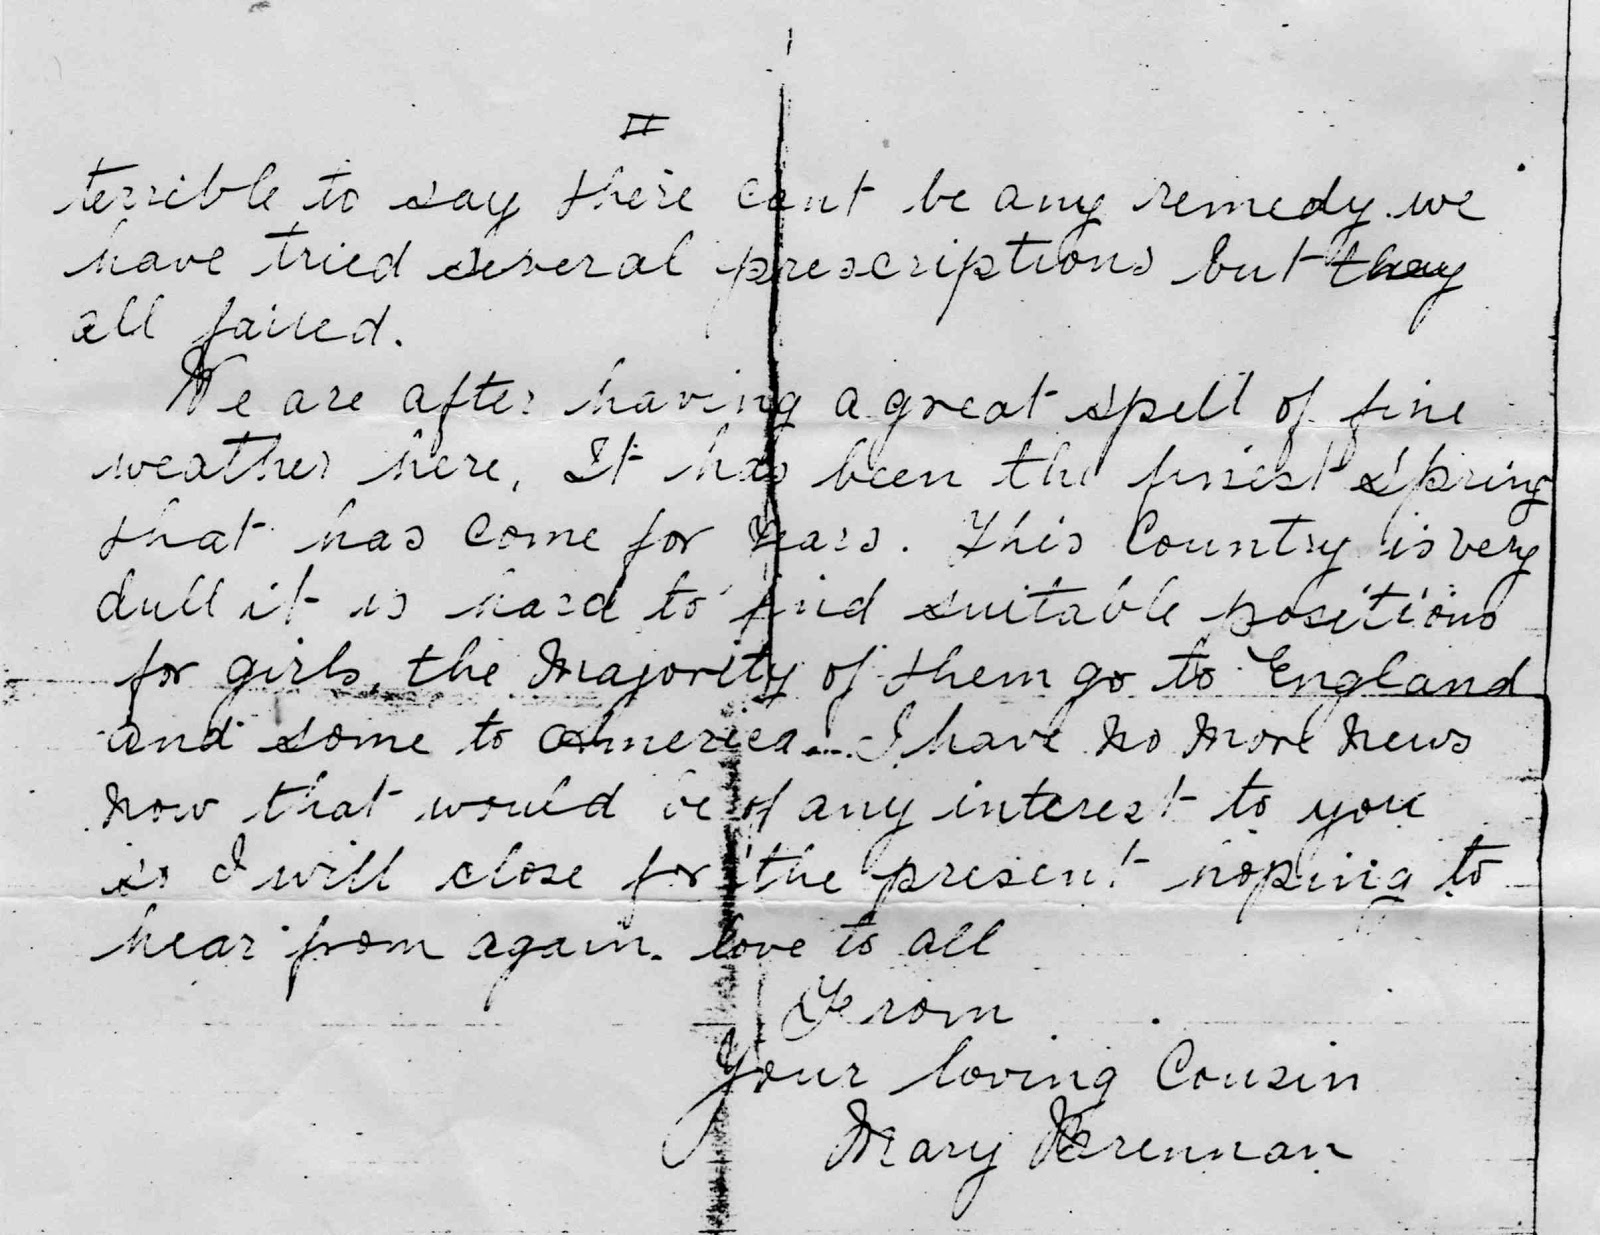 II
terrible to say there cant be any remedy. we
have tried several prescriptions but they
all failed.
We are after having a great spell of fine
weather here, It has been the finest Spring
that has come for years. This Country is very
dull it is hard to find suitable positions
for girls, the Majority of them go to England
and some to America... I have No More News
Now that would be of any interest to you
so I will close for the present hoping to
hear from again. love to all
From
Your loving Cousin
Mary Brennan